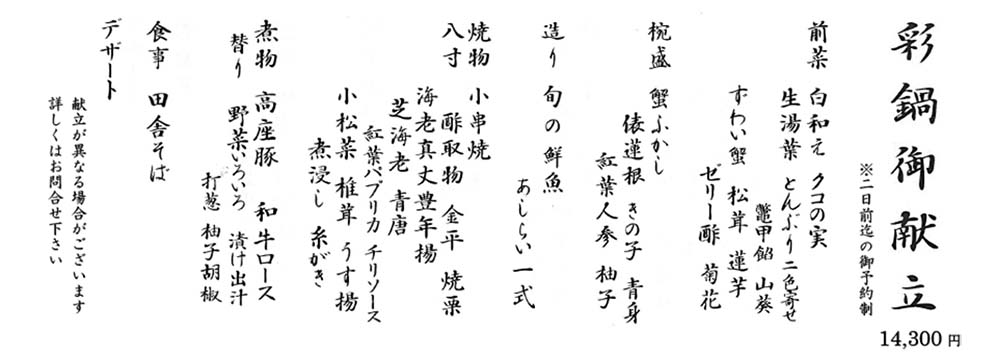 彩鍋御献立
※二日前迄の御予約制
14,300円
前菜 白和え クコの実
生湯葉 とんぶり 二色寄せ
鼈甲餡 山葵
ずわい蟹 松茸 蓮芋
ゼリー酢 菊花
椀盛 蟹ふかし
俵蓮根 きの子 青身
紅葉人参 柚子
造り 旬の鮮魚
あしらい一式
焼物 小串焼
八寸 酢取物 金平 焼栗
海老真丈豊年揚
芝海老 青唐
紅葉パプリカ チリソース
小松菜 椎茸 うす揚
煮浸し 糸がき
煮物 高座豚 和牛ロース
替り 野菜いろいろ 漬け出汁
打葱 柚子胡椒
食事 田舎そば
デザート
献立が異なる場合がございます
詳しくはお問合せ下さい